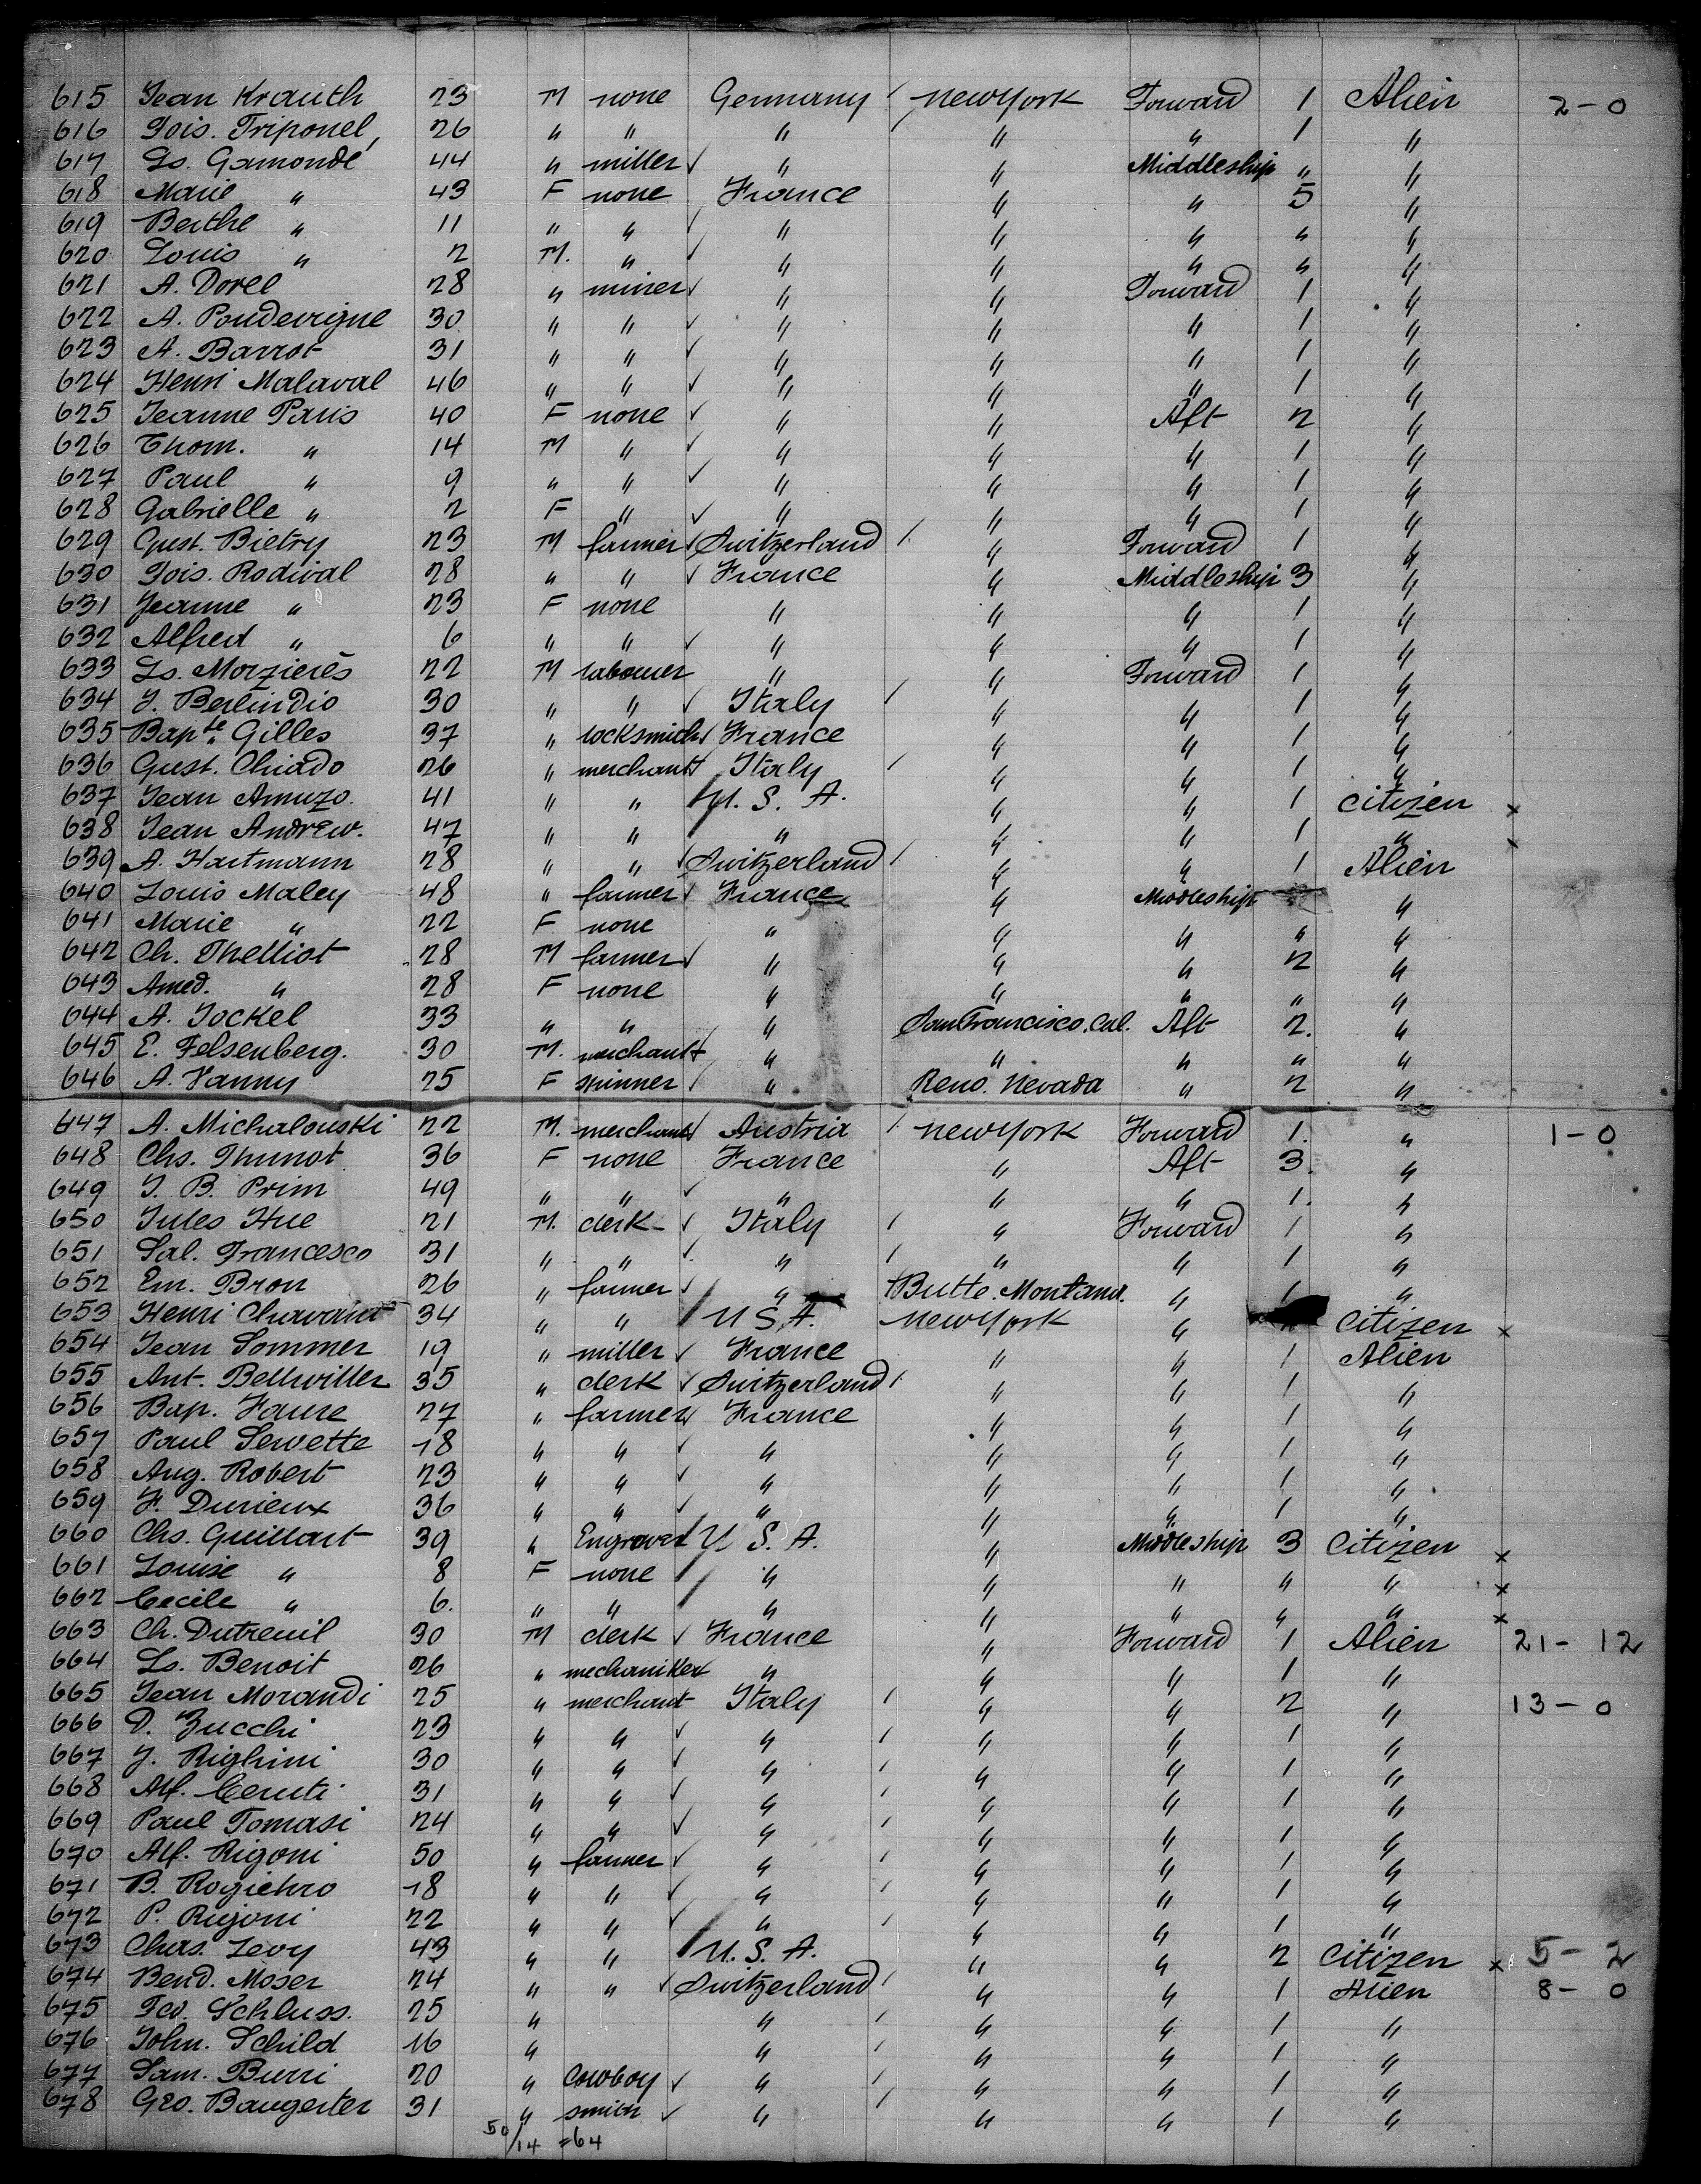 615 Jean Krauth 23 M none Germany newyork Forward 1 Alien 2-0
616 Fois. Triponel 26 " " " " " 1 "
617 Ls. Gamondé 44 " miller " " Middleship " "
618 Marie " 43 F none France " " 5 "
619 Berthe " 11 " " " " " " "
620 Louis " 2 M. " " " " " "
621 A. Dorel 28 " miner " " Forward 1 "
622 A. Poudevigne 30 " " " " " 1 "
623 A. Barrot 31 " " " " " 1 "
624 Henri Malaval 46 " " " " " 1 "
625 Jeanne Paris 40 F none " " Aft 2 "
626 Thom. " 14 M " " " " 1 "
627 Paul " 9 " " " " " 1 "
628 Gabrielle " 2 F " " " " 1 "
629 Gust. Bietry 23 M farmer Switzerland " Forward 1 "
630 Fois. Rodival 28 " " France " Middleship 3 "
631 Jeanne " 23 F none " " " 1 "
632 Alfred " 6 " " " " " 1 "
633 Ls. Morzierès 22 M labourer " " Forward 1 "
634 J. Berlindio 30 " " Italy " " 1 "
635 Bapte. Gilles 37 " locksmith France " " 1 "
636 Gust. Chiado 26 " merchant Italy " " 1 "
637 Jean Amuzo. 41 " " U. S. A. " " 1 Citizen x
638 Jean Andrew. 47 " " " " " 1 " x
639 A. Hartmann 28 " " Switzerland " " 1 Alien
640 Louis Maley 48 " farmer France " Middleship "
641 Marie " 22 F none " " " " "
642 Ch. Thelliot 28 M farmer " " " 2 "
643 Amed. " 28 F none " " " " "
644 A. Jockel 33 " " " San Francisco. Cal. Aft 2. "
645 E. Felsenberg. 30 M. merchant " " " " "
646 A. Vanny 25 F spinner " Reno. Nevada " 2 "
647 A. Michalouski 22 M. merchant Austria newyork Forward 1. " 1-0
648 Chs. Thunot 36 F none France " Aft 3. "
649 J. B. Prim 49 " " " " " 1. "
650 Jules Hue 21 M. clerk Italy " Forward 1 "
651 Sal. Francesco 31 " " " " " 1 "
652 Em. Bron 26 " farmer " Butte. Montana. " 1 "
653 Henri Chavant 34 " " U S. A. newyork " Citizen x
654 Jean Sommer 19 " miller France " " 1 Alien
655 Ant. Bellwiller 35 " clerk Switzerland " " 1 "
656 Bap. Faure 27 " farmer France " " 1 "
657 Paul Sewette 18 " " " " " 1 "
658 Aug. Robert 23 " " " " " 1 "
659 F. Durieux 36 " " " " " 1 "
660 Chs. Guillart 39 " Engraver U S. A. " Middleship 3 Citizen x
661 Louise " 8 F none " " " " " x
662 Cecile " 6. " " " " " " " x
663 Ch. Dutreuil 30 M clerk France " Forward 1 Alien 21-12
664 Ls. Benoit 26 " mechaniker " " " 1 "
665 Jean Morandi 25 " merchant Italy " " 2 " 13-0
666 D. Zucchi 23 " " " " " 1 "
667 J. Righini 30 " " " " " 1 "
668 Alf. Ceruti 31 " " " " " 1 "
669 Paul Tomasi 24 " " " " " 1 "
670 Alf. Rigoni 50 " farmer " " " 1 "
671 B. Rogiehro 18 " " " " " 1 "
672 P. Rigoni 22 " " " " " 1 "
673 Chas. Levy 43 " " U. S. A. " " 2 Citizen x 5-2
674 Bend. Moser 24 " " Switzerland " " 1 Alien 8-0
675 Fed. Schluss. 25 " " " " 1 "
676 John. Schild 16 " " " " 1 "
677 Sam. Burri 20 " Cowboy " " " 1 "
678 Geo. Baugerter 31 " smith " " " 1 "
50/14 =64